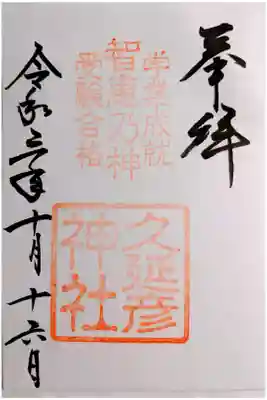 奉拝
学業成就
智恵乃神
受験合格
久延彦
神社
令和三年十月十六日